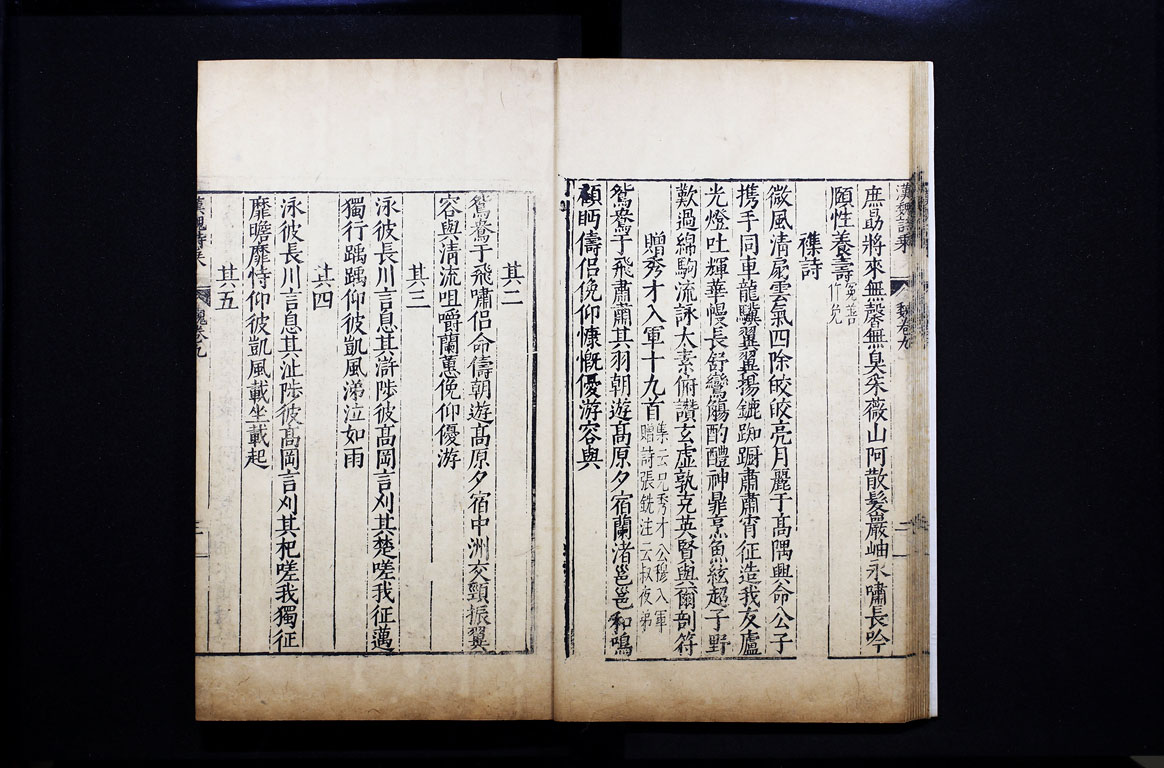 漢魏詩乘 魏卷九 二
庶勗將來無馨無臭采薇山阿散髮巖岫永嘯長吟
頤性養壽
襍詩
微風清扇雲氣四除皎皎亮月麗于高隅興命公子
携手同車龍驥翼翼揚鑣踟躕肅肅宵征造我友廬
光燈吐輝華幔長舒鸞觴酌醴神鼎烹魚絃超子野
歎過綿駒流詠太素俯讃玄虛孰克英賢與爾剖符
贈秀才入軍十九首 集云兄秀才公穆入軍贈詩張銑注云叔夜弟
鴛鴦于飛肅肅其羽朝遊高原夕宿蘭渚邕邕和鳴
顧眄儔侶俛仰慷慨優游容與
其二
鴛鴦于飛嘯侶命儔朝遊高原夕宿中洲交頸振翼
容與清流咀嚼蘭蕙俛仰優游
其三
泳彼長川言息其滸陟彼高岡言刈其楚嗟我征邁
獨行踽踽仰彼凱風涕泣如雨
其四
泳彼長川言息其沚陟彼高岡言刈其杞嗟我獨征
靡瞻靡恃仰彼凱風載坐載起
其五
魏卷九